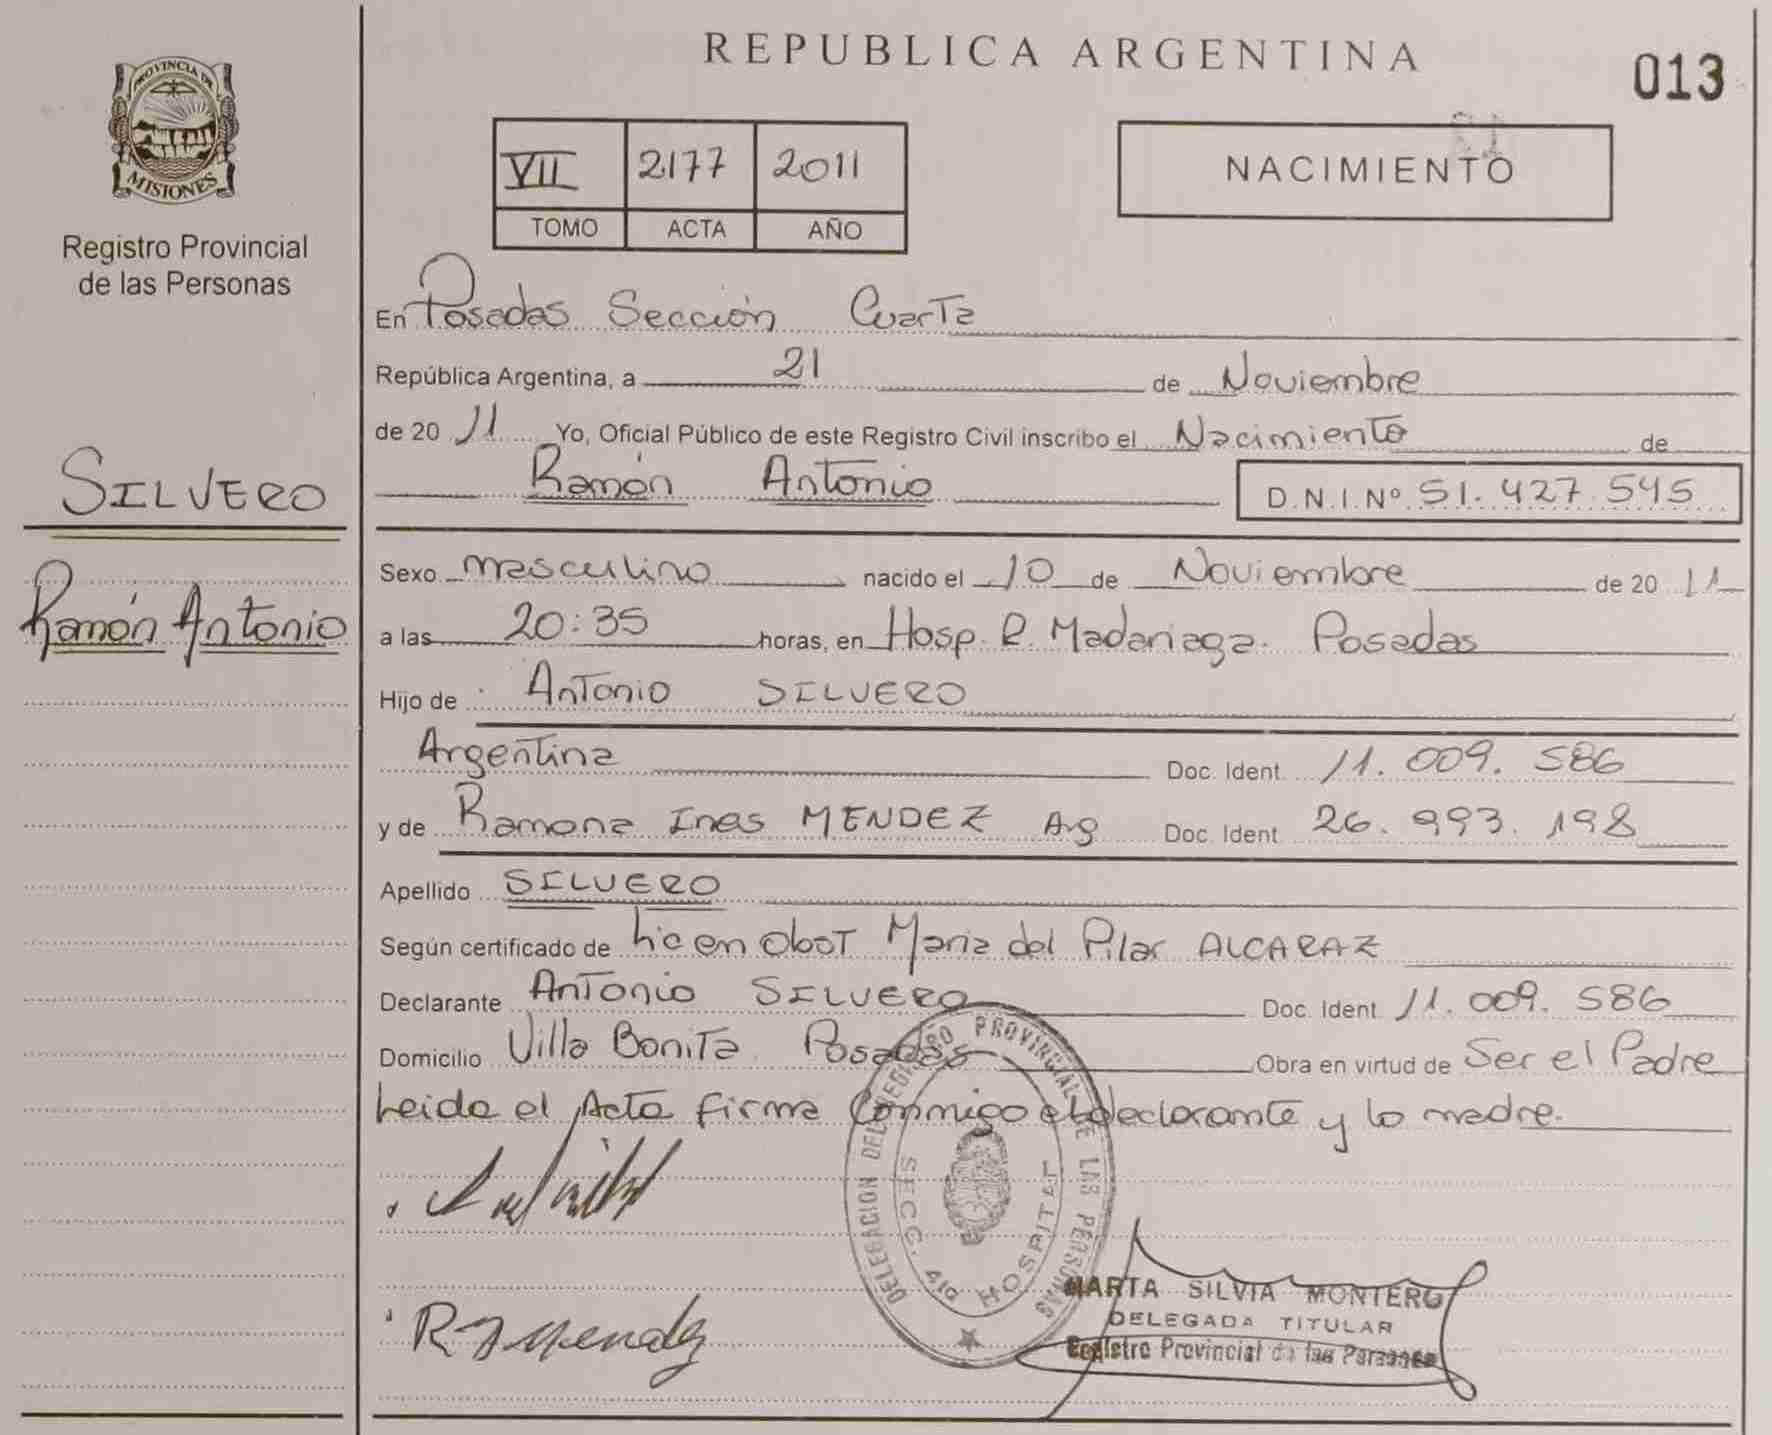 PROVINCIA DE
MISIONES
Registro Provincial
de las Personas
SILVERO
Ramón Antonio
REPUBLICA ARGENTINA
013
VII 2177 2011
TOMO ACTA AÑO
NACIMIENTO
En Posadas Sección Cuarta
República Argentina, a 21 de Noviembre
de 2011 Yo, Oficial Público de este Registro Civil inscribo el Nacimiento de
Ramón Antonio D.N.I.Nº 51.427.545
Sexo masculino nacido el 10 de Noviembre de 2011
a las 20:35 horas, en Hosp. R. Madariaga. Posadas
Hijo de Antonio SILVERO
Argentina Doc. Ident. 11.009.586
y de Ramona Ines MENDEZ Arg Doc. Ident. 26.993.198
Apellido SILVERO
Según certificado de Lic en Obst Maria del Pilar ALCARAZ
Declarante Antonio SILVERO Doc. Ident. 11.009.586
Domicilio Villa Bonita. Posadas Obra en virtud de Ser el Padre
Leida el Acta firma Conmigo el declarante y la madre.
DELEGACION DEL REGISTRO PROVINCIAL DE LAS PERSONAS
SECC. 4ta HOSPITAL
R I Mendez
MARTA SILVIA MONTERO
DELEGADA TITULAR
Registro Provincial de las Personas